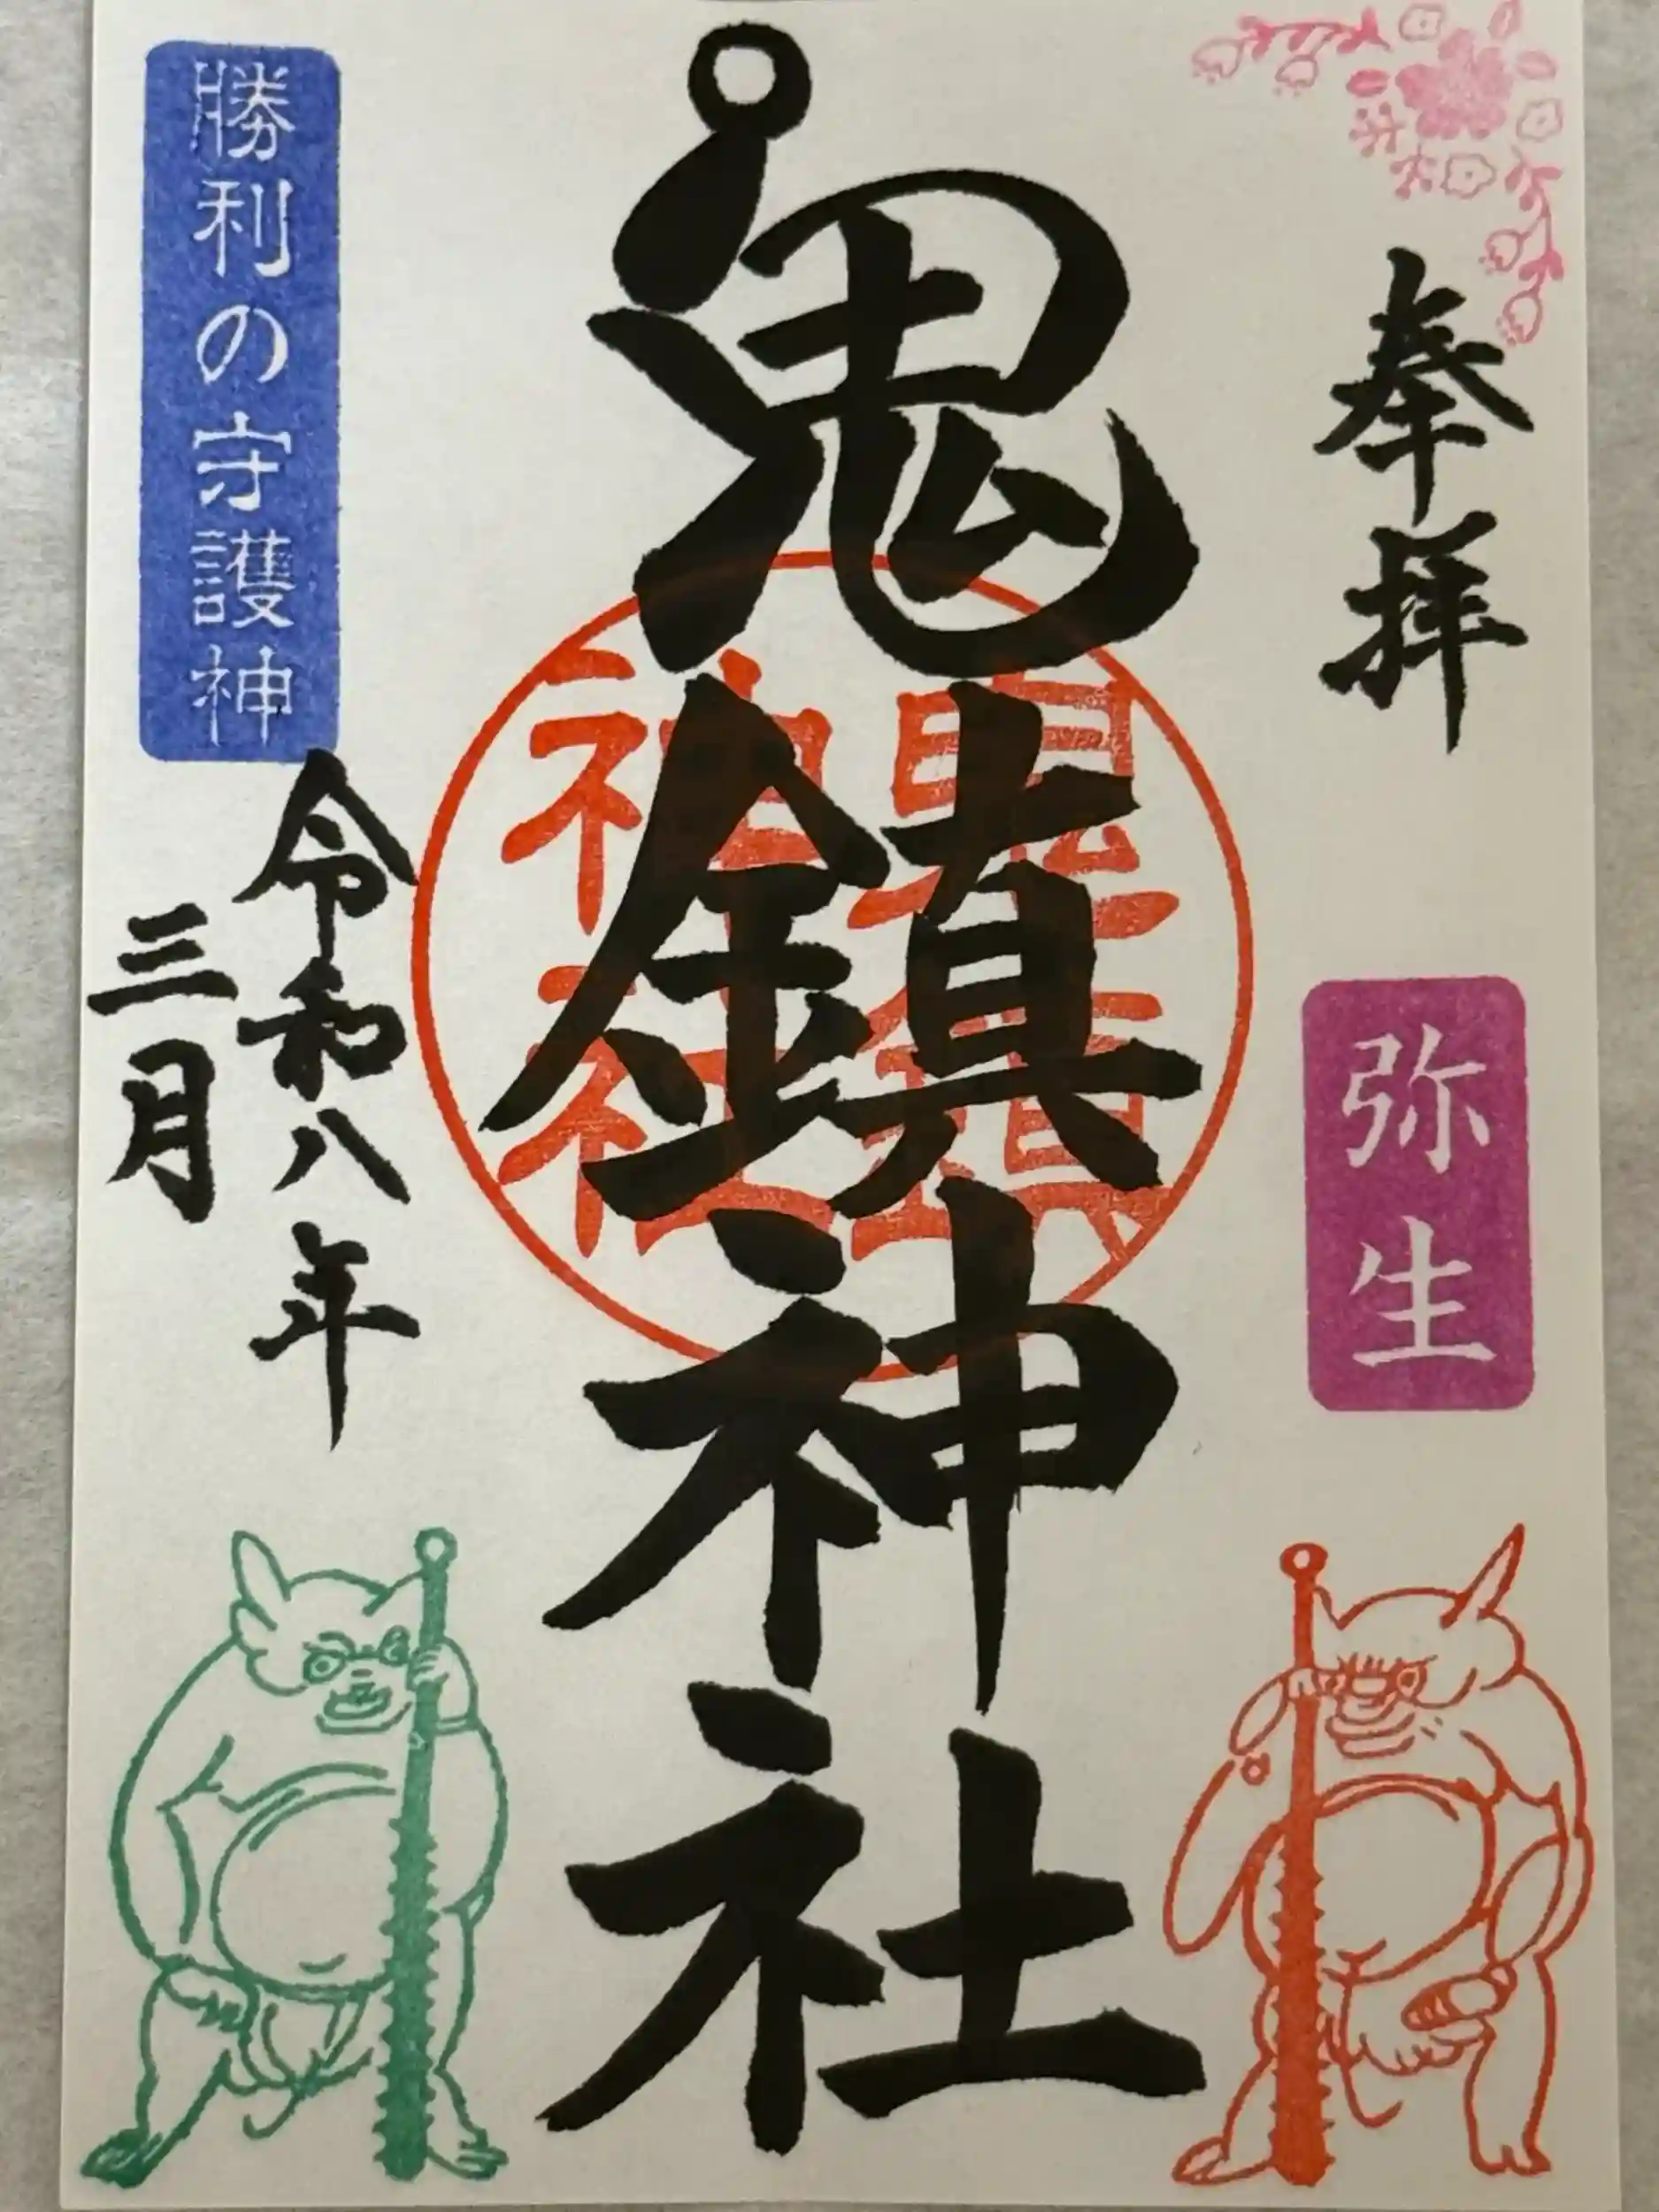 奉拝
弥生
鬼鎮神社
鬼鎮
神社
勝利の守護神
令和八年
三月